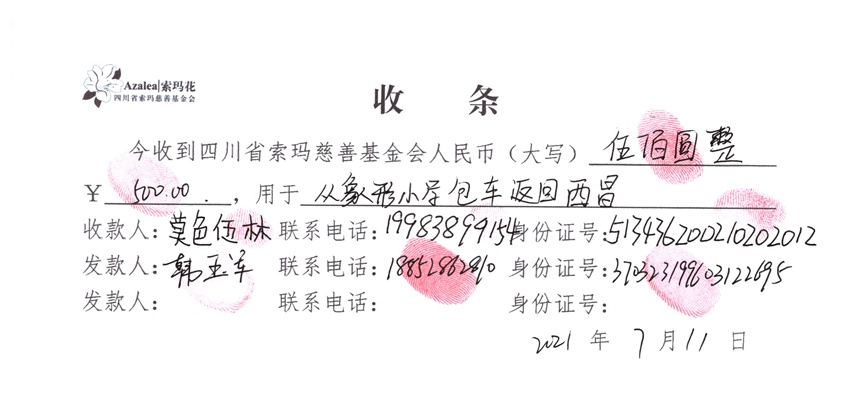 Azalea|索玛花
四川省索玛慈善基金会
收 条
今收到四川省索玛慈善基金会人民币（大写）伍佰圆整
¥ 500.00 ，用于 从象形小学包车返回西昌
收款人：莫色伍林 联系电话：19983899154 身份证号：513436200210202012
发款人：韩玉军 联系电话：18852862810 身份证号：370323199603122695
发款人： 联系电话： 身份证号：
2021 年 7 月 11 日